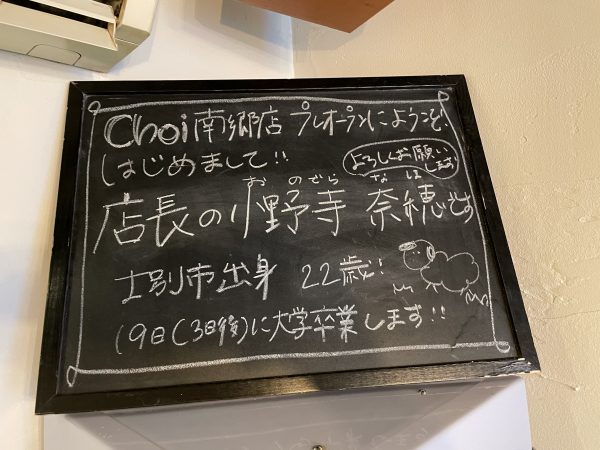 Choi南郷店 プレオープンにようこそ!
はじめまして!!
よろしくお願い
します
お のでら な ほ
店長の小野寺 奈穂です
士別市出身 22歳!!
19日(3日後)に大学卒業します!!